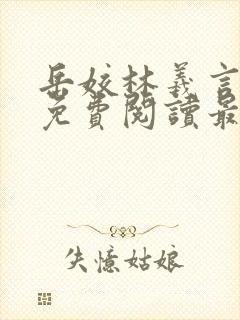 岳姣林義言
免費閱讀最
失憶姑娘